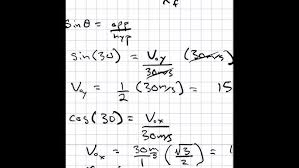 sinθ = opp/hyp
sin(30) = Voy/30m/s (30m/s)
Voy = 1/2 (30m/s) = 15
cos(30) = Vox/30m/s
Vox = 30m/s (√3/2) =